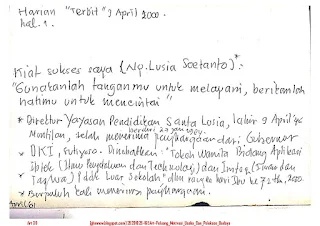 Harian "Terbit" 9 April 2000.
hal. 1.
Kiat sukses saya (Np. Lusia Soetanto)*.
"Gunakanlah tanganmu untuk melayani, berikanlah
hatimu untuk mencintai"
* Direktur Yayasan Pendidikan Santa Lusia, lahir 9 April 45
Muntilan, telah menerima penghargaan dari Gubernur
DKI, Sutiyoso. Dinobatkan: "Tokoh Wanita Bidang Aplikasi
Iptek (Ilmu Pengetahuan dan Technologi) dan Imtaq (Iman dan
Taqwa) Pddk Luar Sekolah" dlm rangka hari Ibu ke 72 th, 2000.
* Berpuluh kali menerima penghargaan.